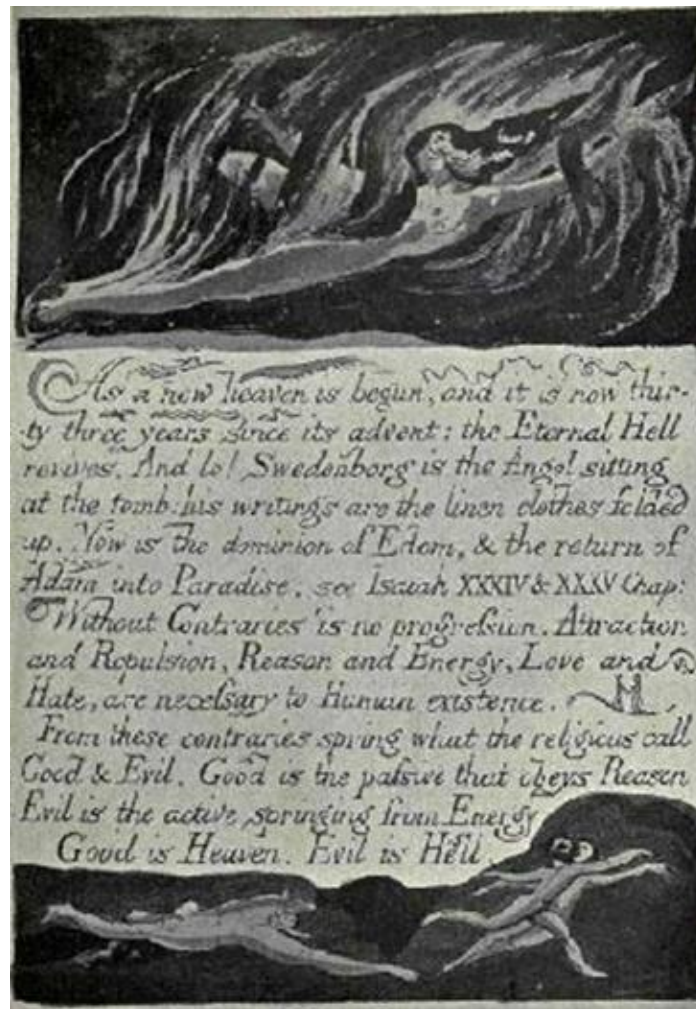 As a new heaven is begun, and it is now thir-
-ty three years since its advent: the Eternal Hell
revives. And lo! Swedenborg is the Angel sitting
at the tomb: his writings are the linen clothes folded
up. Now is the dominion of Edom, & the return of
Adam into Paradise. see Isaiah XXXIV & XXXV Chap:
Without Contraries is no progreſsion. Attraction
and Repulsion, Reason and Energy, Love and
Hate, are neceſsary to Human existence.
From these contraries spring what the religious call
Good & Evil. Good is the paſsive that obeys Reason
Evil is the active springing from Energy
Good is Heaven. Evil is Hell.